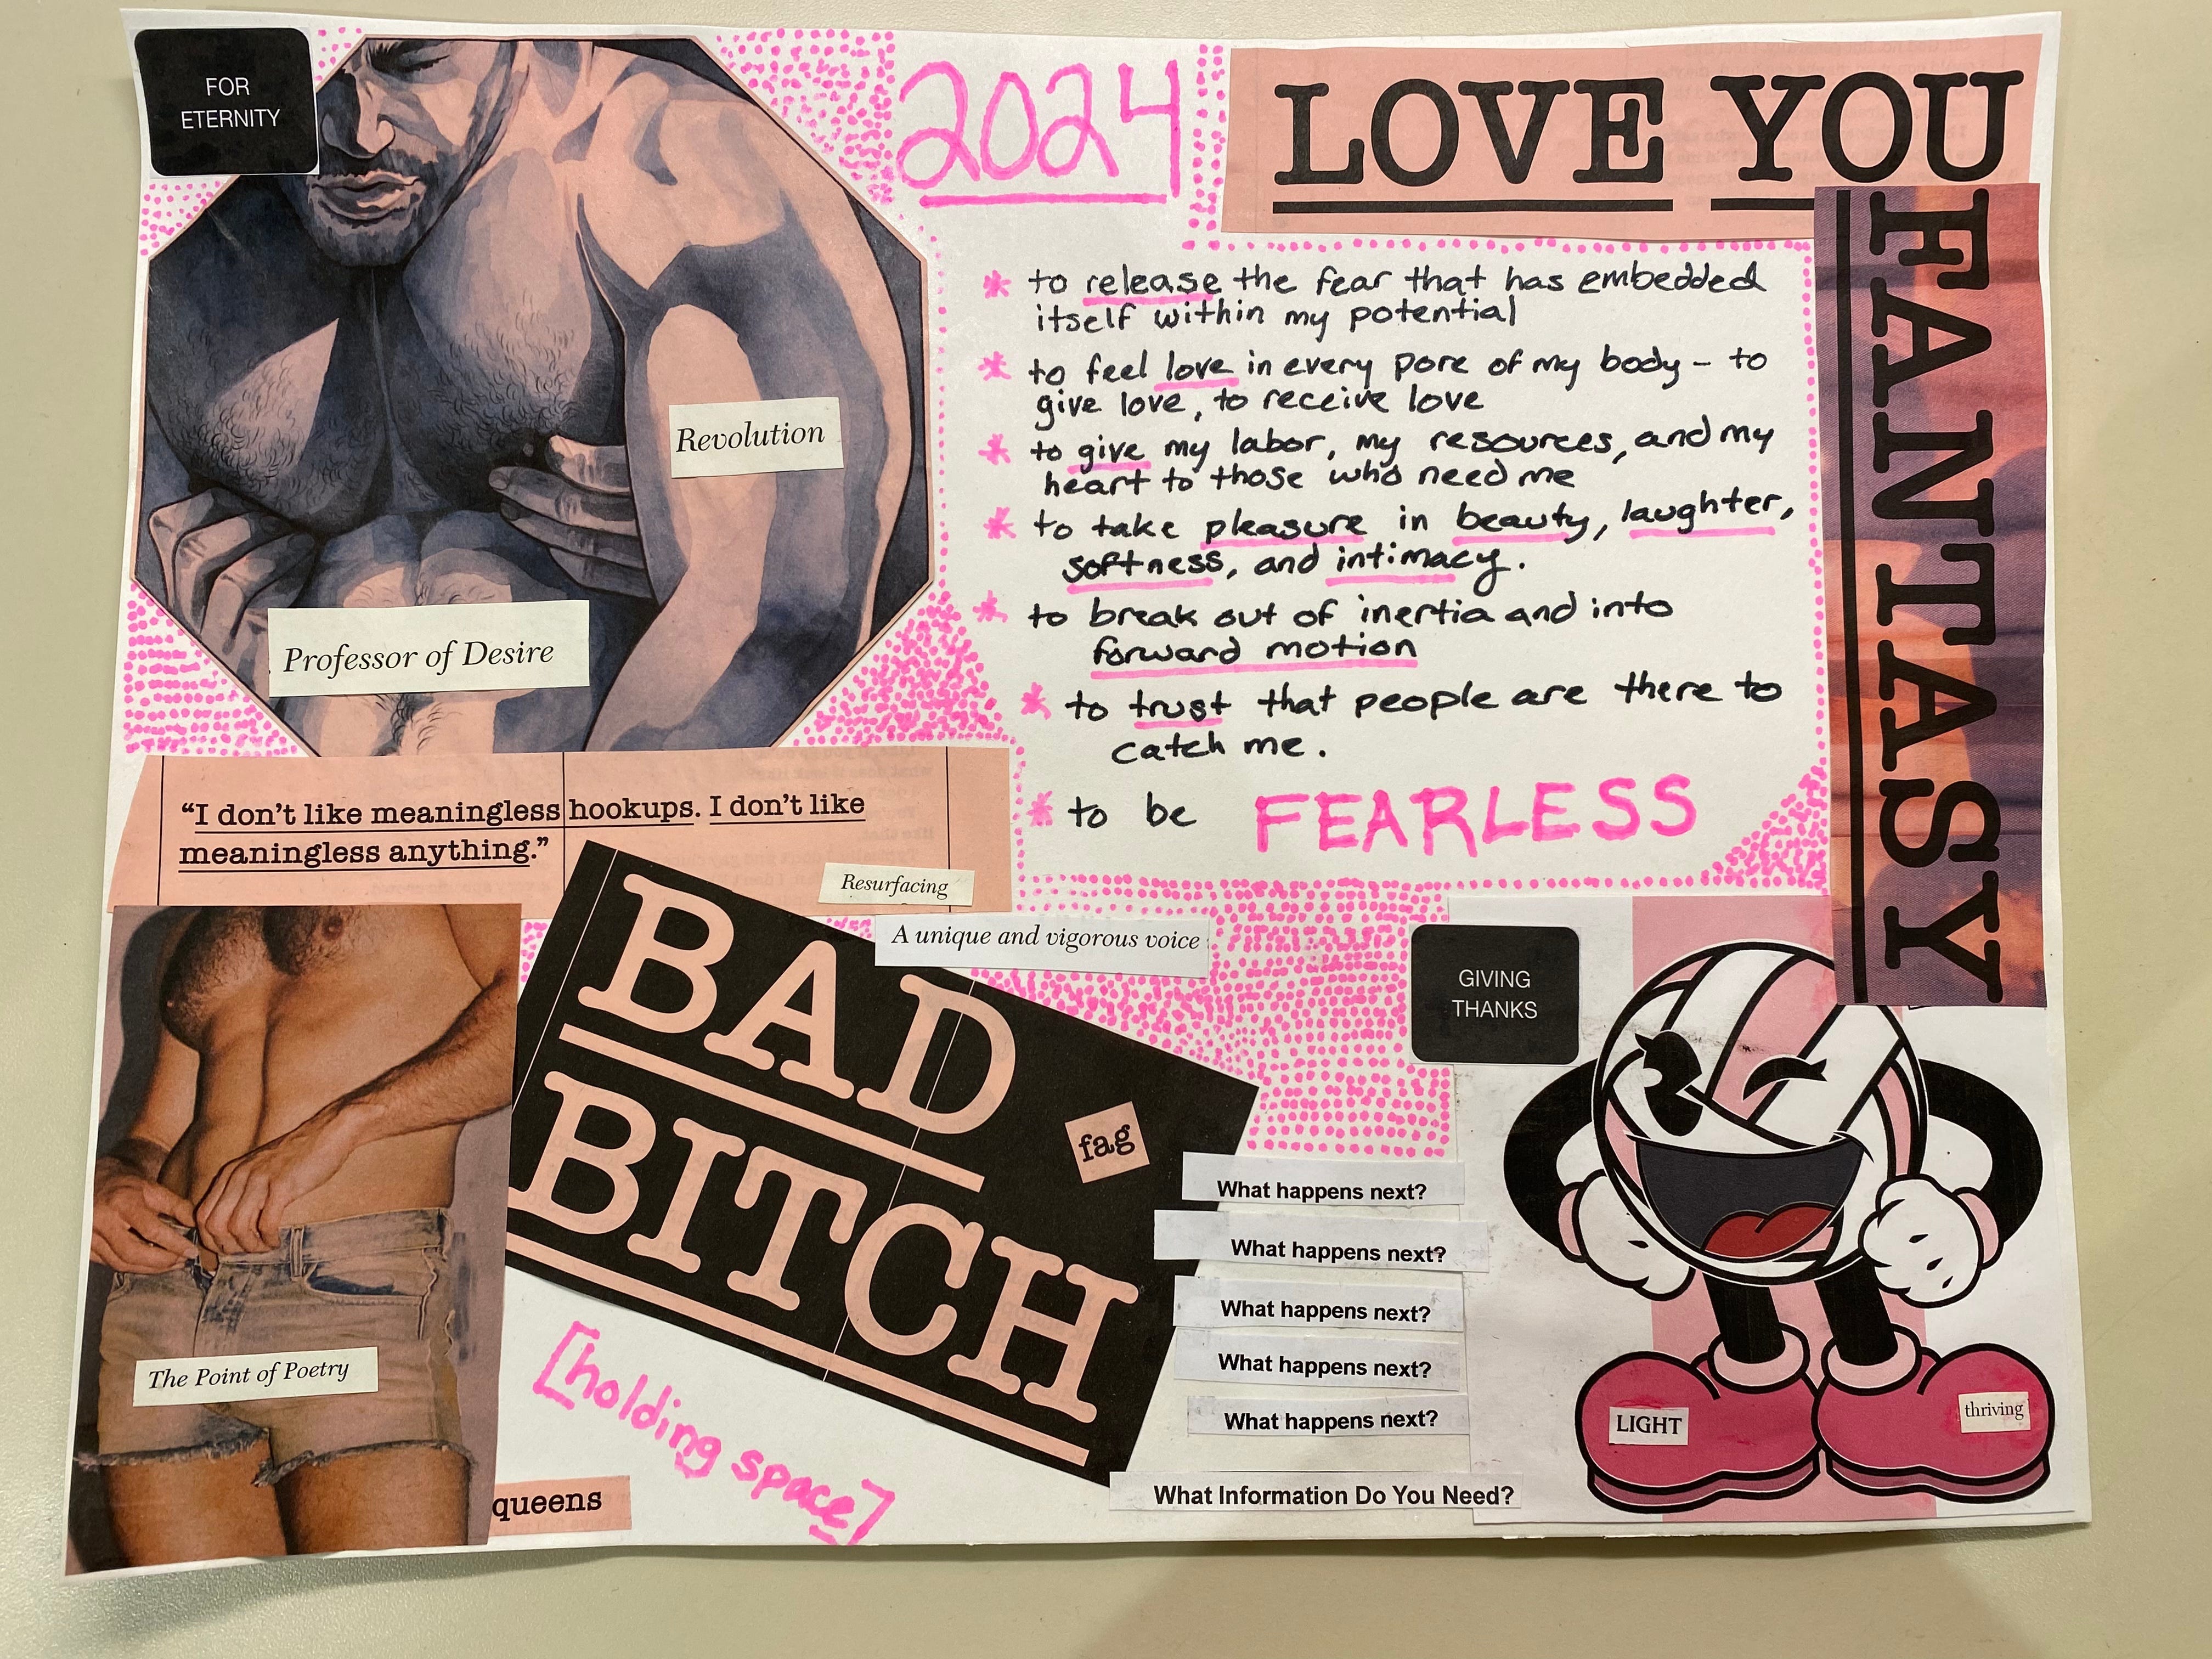 FOR
ETERNITY
2024
LOVE YOU
FANTASY
Revolution
Professor of Desire
* to release the fear that has embedded
itself within my potential
* to feel love in every pore of my body - to
give love, to receive love
* to give my labor, my resources, and my
heart to those who need me
* to take pleasure in beauty, laughter,
softness, and intimacy.
* to break out of inertia and into
forward motion
* to trust that people are there to
catch me.
* to be FEARLESS
“I don’t like meaningless hookups. I don’t like
meaningless anything.”
Resurfacing
A unique and vigorous voice
BAD
BITCH
fag
GIVING
THANKS
What happens next?
What happens next?
What happens next?
What happens next?
What happens next?
What Information Do You Need?
The Point of Poetry
queens
[holding space]
LIGHT
thriving